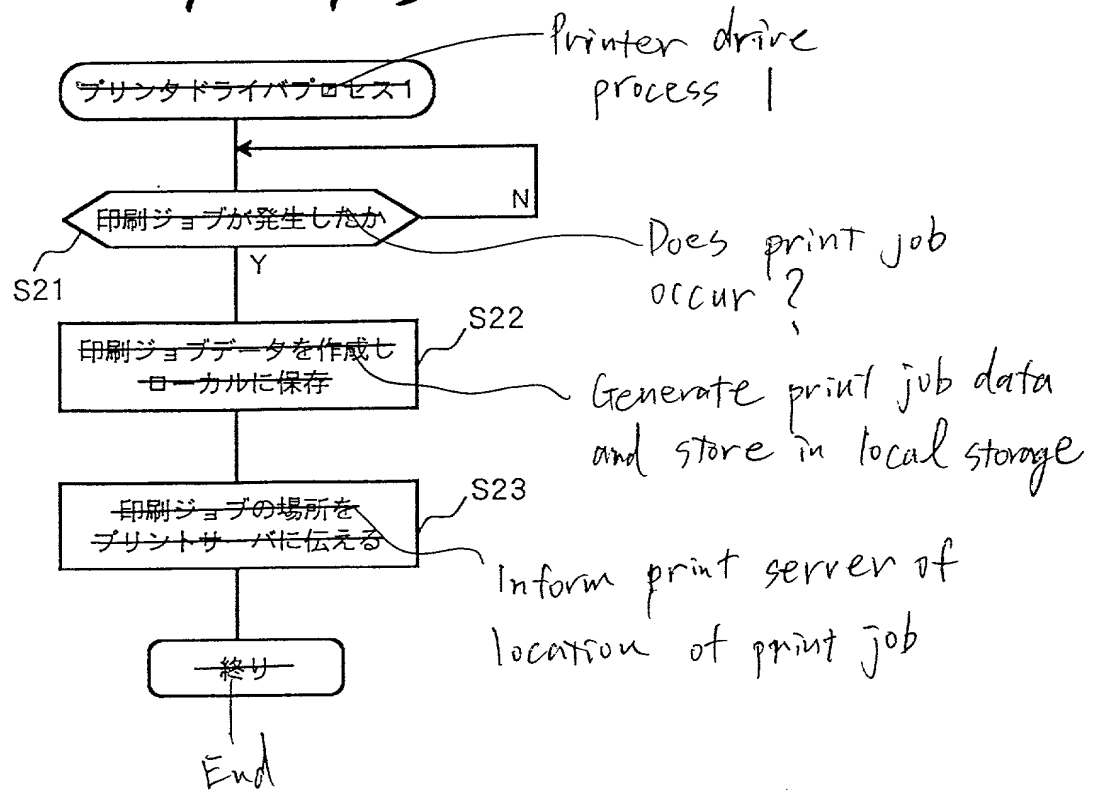 Printer drive
process 1
プリンタドライバプロセス1
N
印刷ジョブが発生したか
S21
Y
Does print job
occur ?
S22
印刷ジョブデータを作成し
ローカルに保存
Generate print job data
and store in local storage
S23
印刷ジョブの場所を
プリントサーバに伝える
Inform print server of
location of print job
終り
End